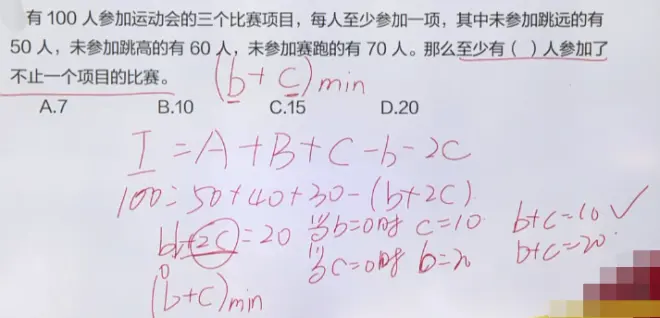 有 100 人参加运动会的三个比赛项目，每人至少参加一项，其中未参加跳远的有
50 人，未参加跳高的有 60 人，未参加赛跑的有 70 人。那么至少有（ ）人参加了
不止一个项目的比赛。
(b+c)min
A.7 B.10 C.15 D.20
I=A+B+C-b-2C
100=50+40+30-(b+2C)
b+2C=20 当b=0时 C=10 b+c=10 ✓
当C=0时 b=20 b+c=20
0
(b+c)min